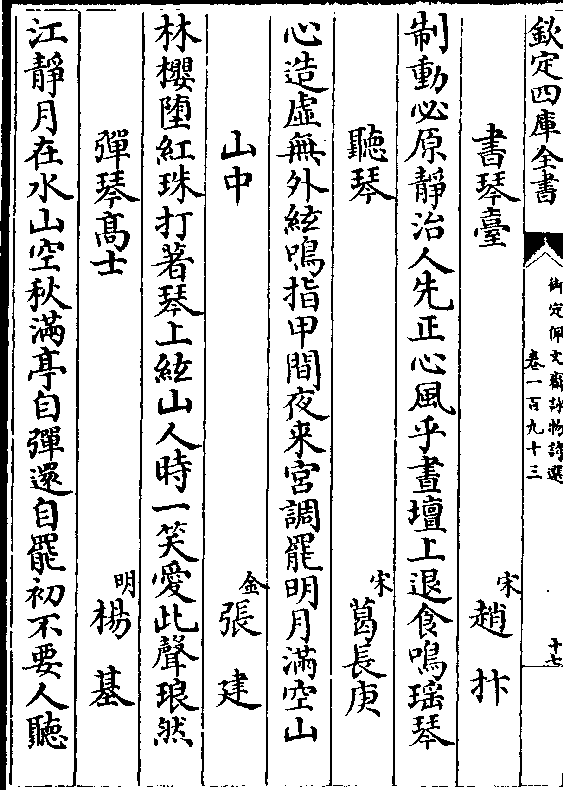 欽定四庫全書
御定佩文齋詠物詩選
卷一百九十三
十七
書琴臺
宋趙抃
制動必原靜治人先正心風乎晝壇上退食鳴瑶琴
聽琴
宋葛長庚
心造虛無外絃鳴指甲間夜来宮調罷明月滿空山
山中
金張建
林櫻墮紅珠打著琴上絃山人時一笑愛此聲琅然
彈琴髙士
明楊基
江靜月在水山空秋滿亭自彈還自罷初不要人聽